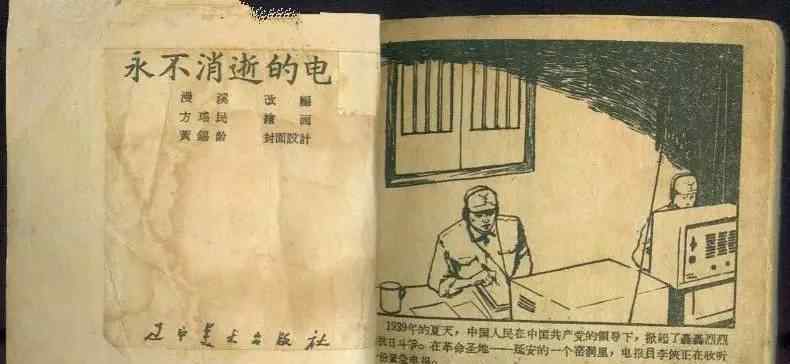 永不消逝的电
漫溪 改編
方瑶民 繪画
黃錫齡 封面設計
辽宁美术出版社
1939年的夏天，中国人民在中国共产党的領导下，掀起了轟轟烈烈
抗日斗爭。在革命圣地——延安的一个窑洞里，电报員李俠正在收听
份紧急电报：